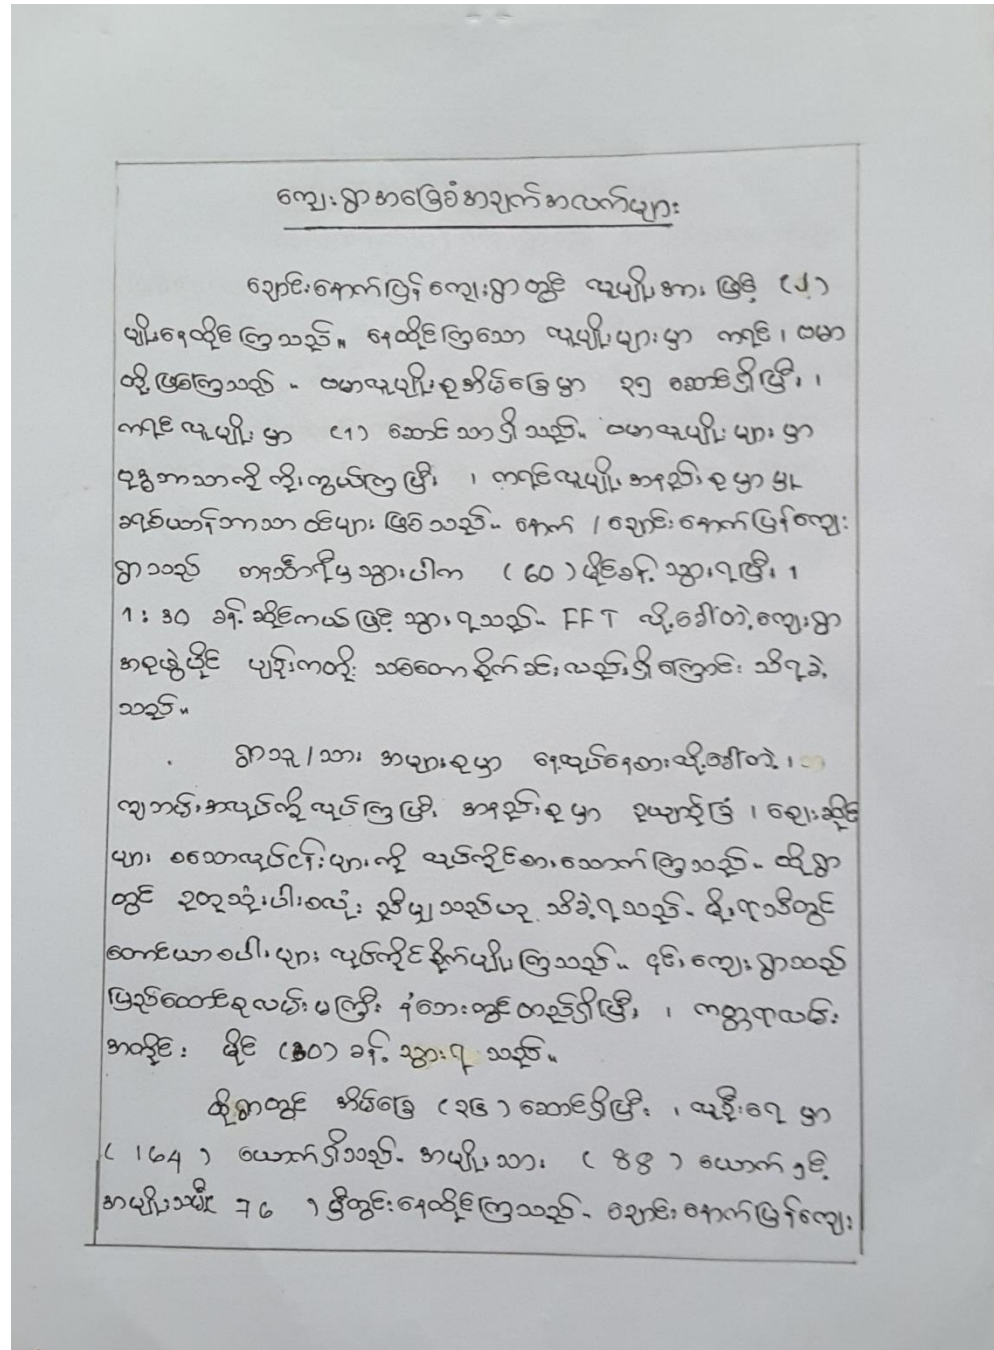 ကျေးရွာအခြေခံအချက်အလက်များ
ချောင်းနောက်ပြန်ကျေးရွာတွင် လူမျိုးအား ဖြင့် (၂)
မျိုးနေထိုင်ကြသည်။ နေထိုင်ကြသော လူမျိုးများမှာ ကရင်၊ ဗမာ
တို့ဖြစ်ကြသည်။ ဗမာလူမျိုးစုအိမ်ခြေမှာ ၃၅ ဆောင်ရှိပြီး၊
ကရင်လူမျိုးမှာ (1) ဆောင်သာရှိသည်။ ဗမာလူမျိုးများမှာ
ဗုဒ္ဓဘာသာကို ကိုးကွယ်ကြပြီး ၊ ကရင်လူမျိုးအနည်းစုမှာမူ
ခရစ်ယာန်ဘာသာဝင်များ ဖြစ်သည်။ နောက် / ချောင်းနောက်ပြန်ကျေး
ရွာသည် တနင်္သာရီမှသွားပါက (60) မိုင်ခန့် သွားရပြီး၊
1: 30 ခန့် ဆိုင်ကယ်ဖြင့် သွားရသည်။ FFT လို့ခေါ်တဲ့ကျေးရွာ
အစုအဖွဲ့ပိုင် မျဉ်းကတိုး သစ်တောစိုက်ခင်းလည်းရှိကြောင်း သိရခဲ့
သည်။
ရွာသူ/သား အများစုမှာ နေ့လုပ်နေ့စားလို့ခေါ်တဲ့၊
ကျဘမ်းအလုပ်ကိုလုပ်ကြပြီး အနည်းစုမှာ ဥယျာဉ်ခြံ ၊ ဈေးဆိုင်
များ စသောလုပ်ငန်းများကို လုပ်ကိုင်စားသောက်ကြသည်။ ထိုရွာ
တွင် ဥတုသုံးပါးစလုံး ညီမျှသည်ဟု သိခဲ့ရသည်။ မိုးရာသီတွင်
တောင်ယာစပါးများ လုပ်ကိုင်စိုက်ပျိုးကြသည်။ ၎င်းကျေးရွာသည်
ပြည်ထောင်စုလမ်းမကြီး နံဘေးတွင်တည်ရှိပြီး ၊ ကတ္တရာလမ်း
အတိုင်း မိုင် (30) ခန့် သွားရ သည်။
ထိုရွာတွင် အိမ်ခြေ (၃၆) ဆောင်ရှိပြီး ၊ လူဦးရေ မှာ
( 164 ) ယောက်ရှိသည်။ အမျိုးသား ( 88 ) ယောက် နှင့်
အမျိုးသမီး 76 ) ဦးတွင်းနေထိုင်ကြသည်။ ချောင်းနောက်ပြန်ကျေး